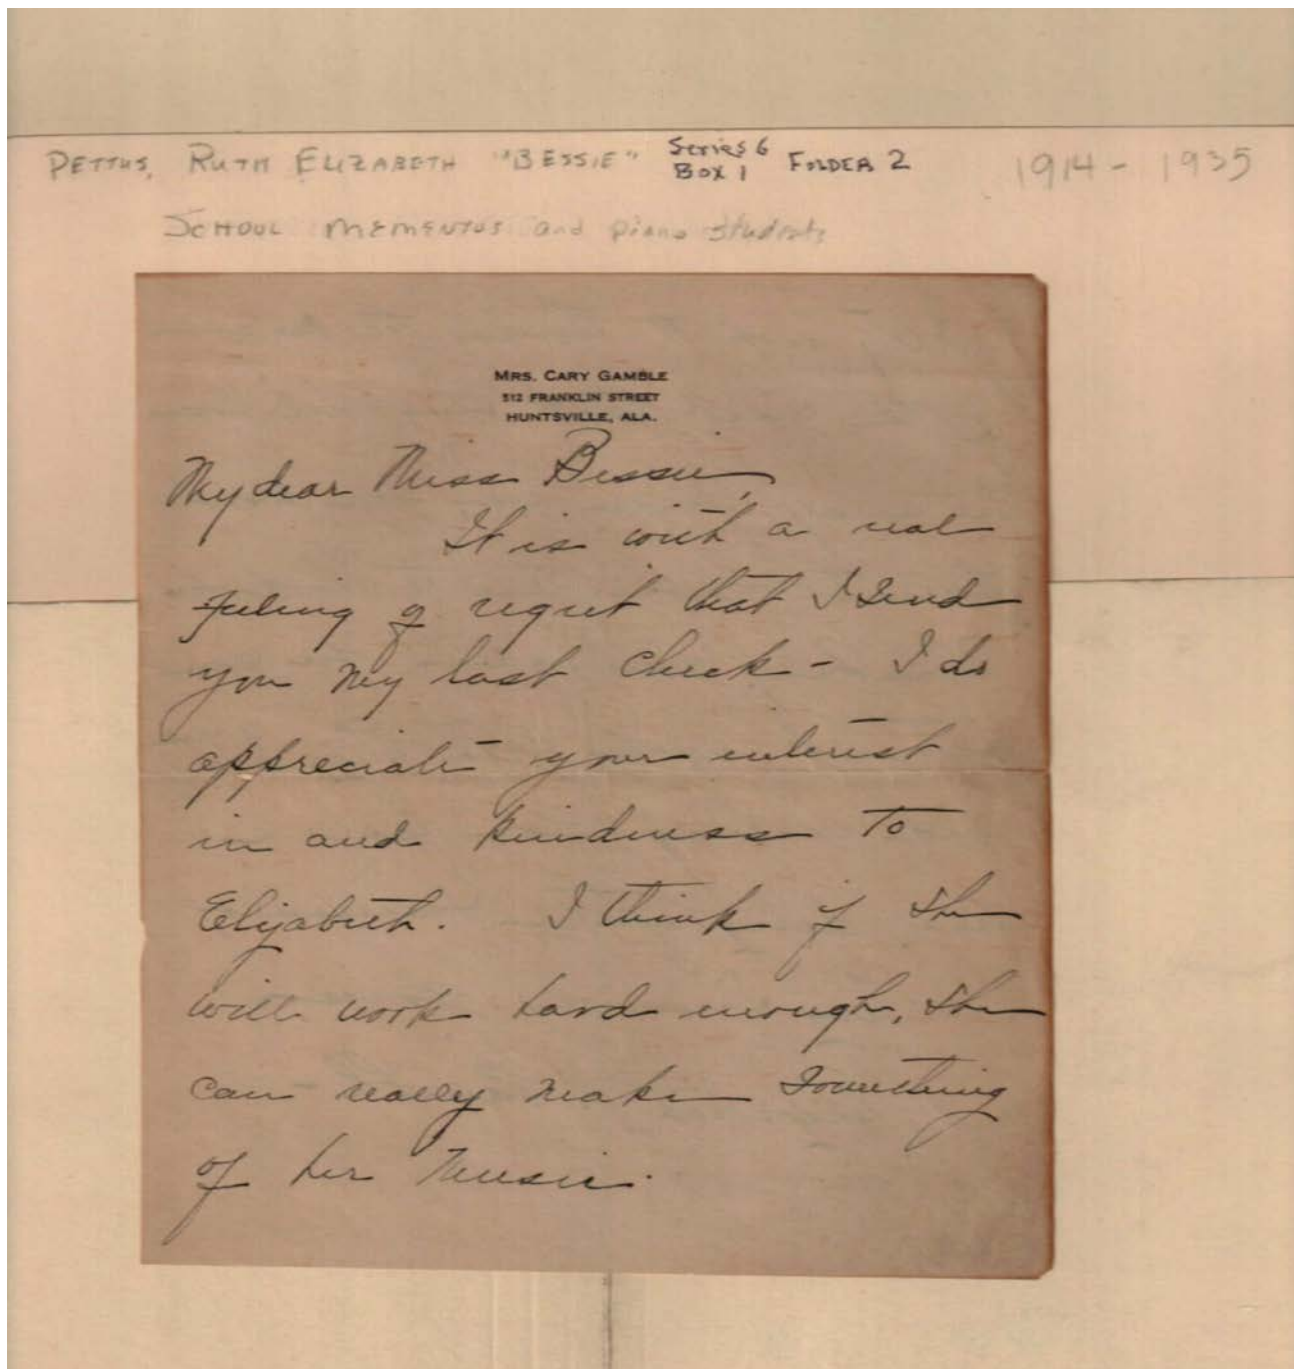 PETTUS, RUTH ELIZABETH "BESSIE" Series 6 Box 1 FOLDER 2 1914 - 1935
SCHOOL MEMENTOS and piano students
MRS. CARY GAMBLE
512 FRANKLIN STREET
HUNTSVILLE, ALA.
My dear Miss Bessie,
It is with a real
feeling of regret that I send
you my last check - I do
appreciate your interest
in and kindness to
Elizabeth. I think if she
will work hard enough, she
can really make something
of her music.